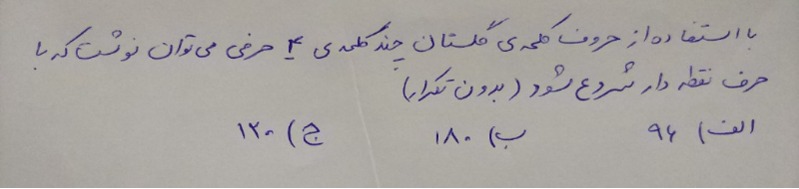 با استفاده از حروف کلمه‌ی گلستان چند کلمه‌ی ۴ حرفی می‌توان نوشت که با
حرف نقطه دار شروع شود (بدون تکرار)
الف) ۹۶ ب) ۱۸۰ ج) ۱۲۰